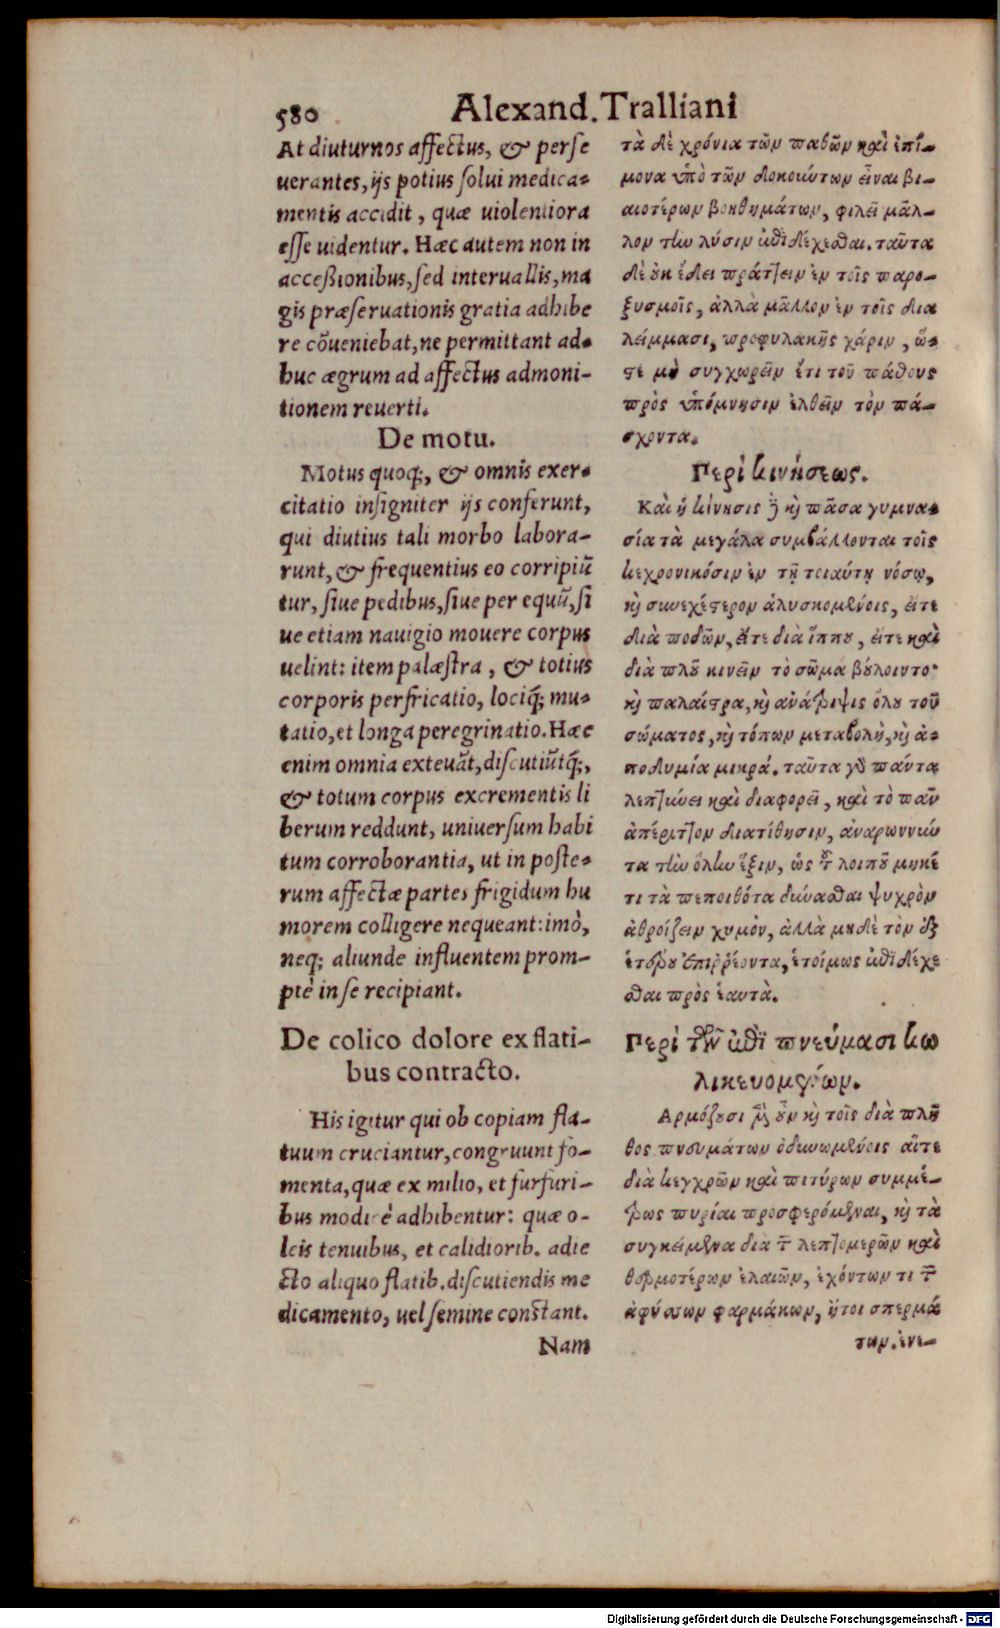 580 Alexand. Tralliani
At diuturnos affectus, & perse
uerantes, ijs potius solui medica-
mentis accidit, quæ uiolentiora
esse uidentur. Hæc autem non in
accessionibus, sed interuallis, ma
gis præseruationis gratia adhibe
re cōueniebat, ne permittant ad-
huc ægrum ad affectus admoni-
tionem reuerti.
De motu.
Motus quoq;, & omnis exer-
citatio insigniter ijs conferunt,
qui diutius tali morbo labora-
runt, & frequentius eo corripiū
tur, siue pedibus, siue per equū, si
ue etiam nauigio mouere corpus
uelint: item palæstra, & totius
corporis perfricatio, lociq́; mu-
tatio, et longa peregrinatio. Hæc
enim omnia exteuāt, discutiūtq́;,
& totum corpus excrementis li
berum reddunt, uniuersum habi
tum corroborantia, ut in poste-
rum affectæ partes frigidum hu
morem colligere nequeant: imò,
neq; aliunde influentem prom-
ptè in se recipiant.
De colico dolore ex flati-
bus contracto.
His igitur qui ob copiam fla-
tuum cruciantur, congruunt fo-
menta, quæ ex milio, et furfuri-
bus modicè adhibentur: quæ o-
leis tenuibus, et calidiorib. adie
cto aliquo flatib. discutiendis me
dicamento, uel semine constant.
Nam
τὰ δὲ χρόνια τῶν παθῶν καὶ ἐπί-
μονα ὑπὸ τῶν δοκούντων εἶναι βι-
αιοτέρων βοηθημάτων, φιλεῖ μᾶλ-
λον τὴν λύσιν ἐπιδέχεσθαι. ταῦτα
δὲ οὐκ ἔδει πράττειν ἐν τοῖς παρο-
ξυσμοῖς, ἀλλὰ μᾶλλον ἐν τοῖς δια
λείμμασι, προφυλακῆς χάριν, ὥς-
τε μὴ συγχωρεῖν ἔτι τοῦ πάθους
πρὸς ὑπόμνησιν ἐλθεῖν τὸν πά-
σχοντα.
Περὶ κινήσεως.
Καὶ ἡ κίνησις δὲ καὶ πᾶσα γυμνα-
σία τὰ μεγάλα συμβάλλονται τοῖς
κεχρονικόσιν ἐν τῇ τοιαύτῃ νόσῳ,
καὶ συνεχέστερον ἁλυσκομένοις, εἴτε
διὰ ποδῶν, εἴτε διὰ ἵππου, εἴτε καὶ
διὰ πλοῦ κινεῖν τὸ σῶμα βούλοιντο·
καὶ παλαίστρα, καὶ ἀνάτριψις ὅλου τοῦ
σώματος, καὶ τόπων μεταβολὴ, καὶ ἀ-
ποδυμία μικρά. ταῦτα γὰρ πάντα
λεπτύνει καὶ διαφορεῖ, καὶ τὸ πᾶν
ἀπέριττον διατίθησιν, ἀναρωννύν
τα τὴν ὅλην ἕξιν, ὡς τοῦ λοιποῦ μηκέ
τι τὰ πεποιθότα δύνασθαι ψυχρὸν
ἀθροίζειν χυμὸν, ἀλλὰ μηδὲ τὸν ἐξ
ἑτέρου ἐπιῤῥέοντα, ἑτοίμως ἐπιδέχε
σθαι πρὸς ἑαυτὰ.
Περὶ τῶν ἐπὶ πνεύμασι κω
λικευομένων.
Αρμόζουσι μὲν οὖν καὶ τοῖς διὰ πλῆ
θος πνευμάτων ὀδυνωμένοις αἵτε
διὰ κεγχρῶν καὶ πιτύρων συμμέ-
τρως πυρίαι προσφερόμεναι, καὶ τὰ
συγκείμενα διὰ τῶν λεπτομερῶν καὶ
θερμοτέρων ἐλαιῶν, ἐχόντων τι τῶν
ἀφύσων φαρμάκων, ἤτοι σπερμά
των. ἐνε-
Digitalisierung gefördert durch die Deutsche Forschungsgemeinschaft - DFG